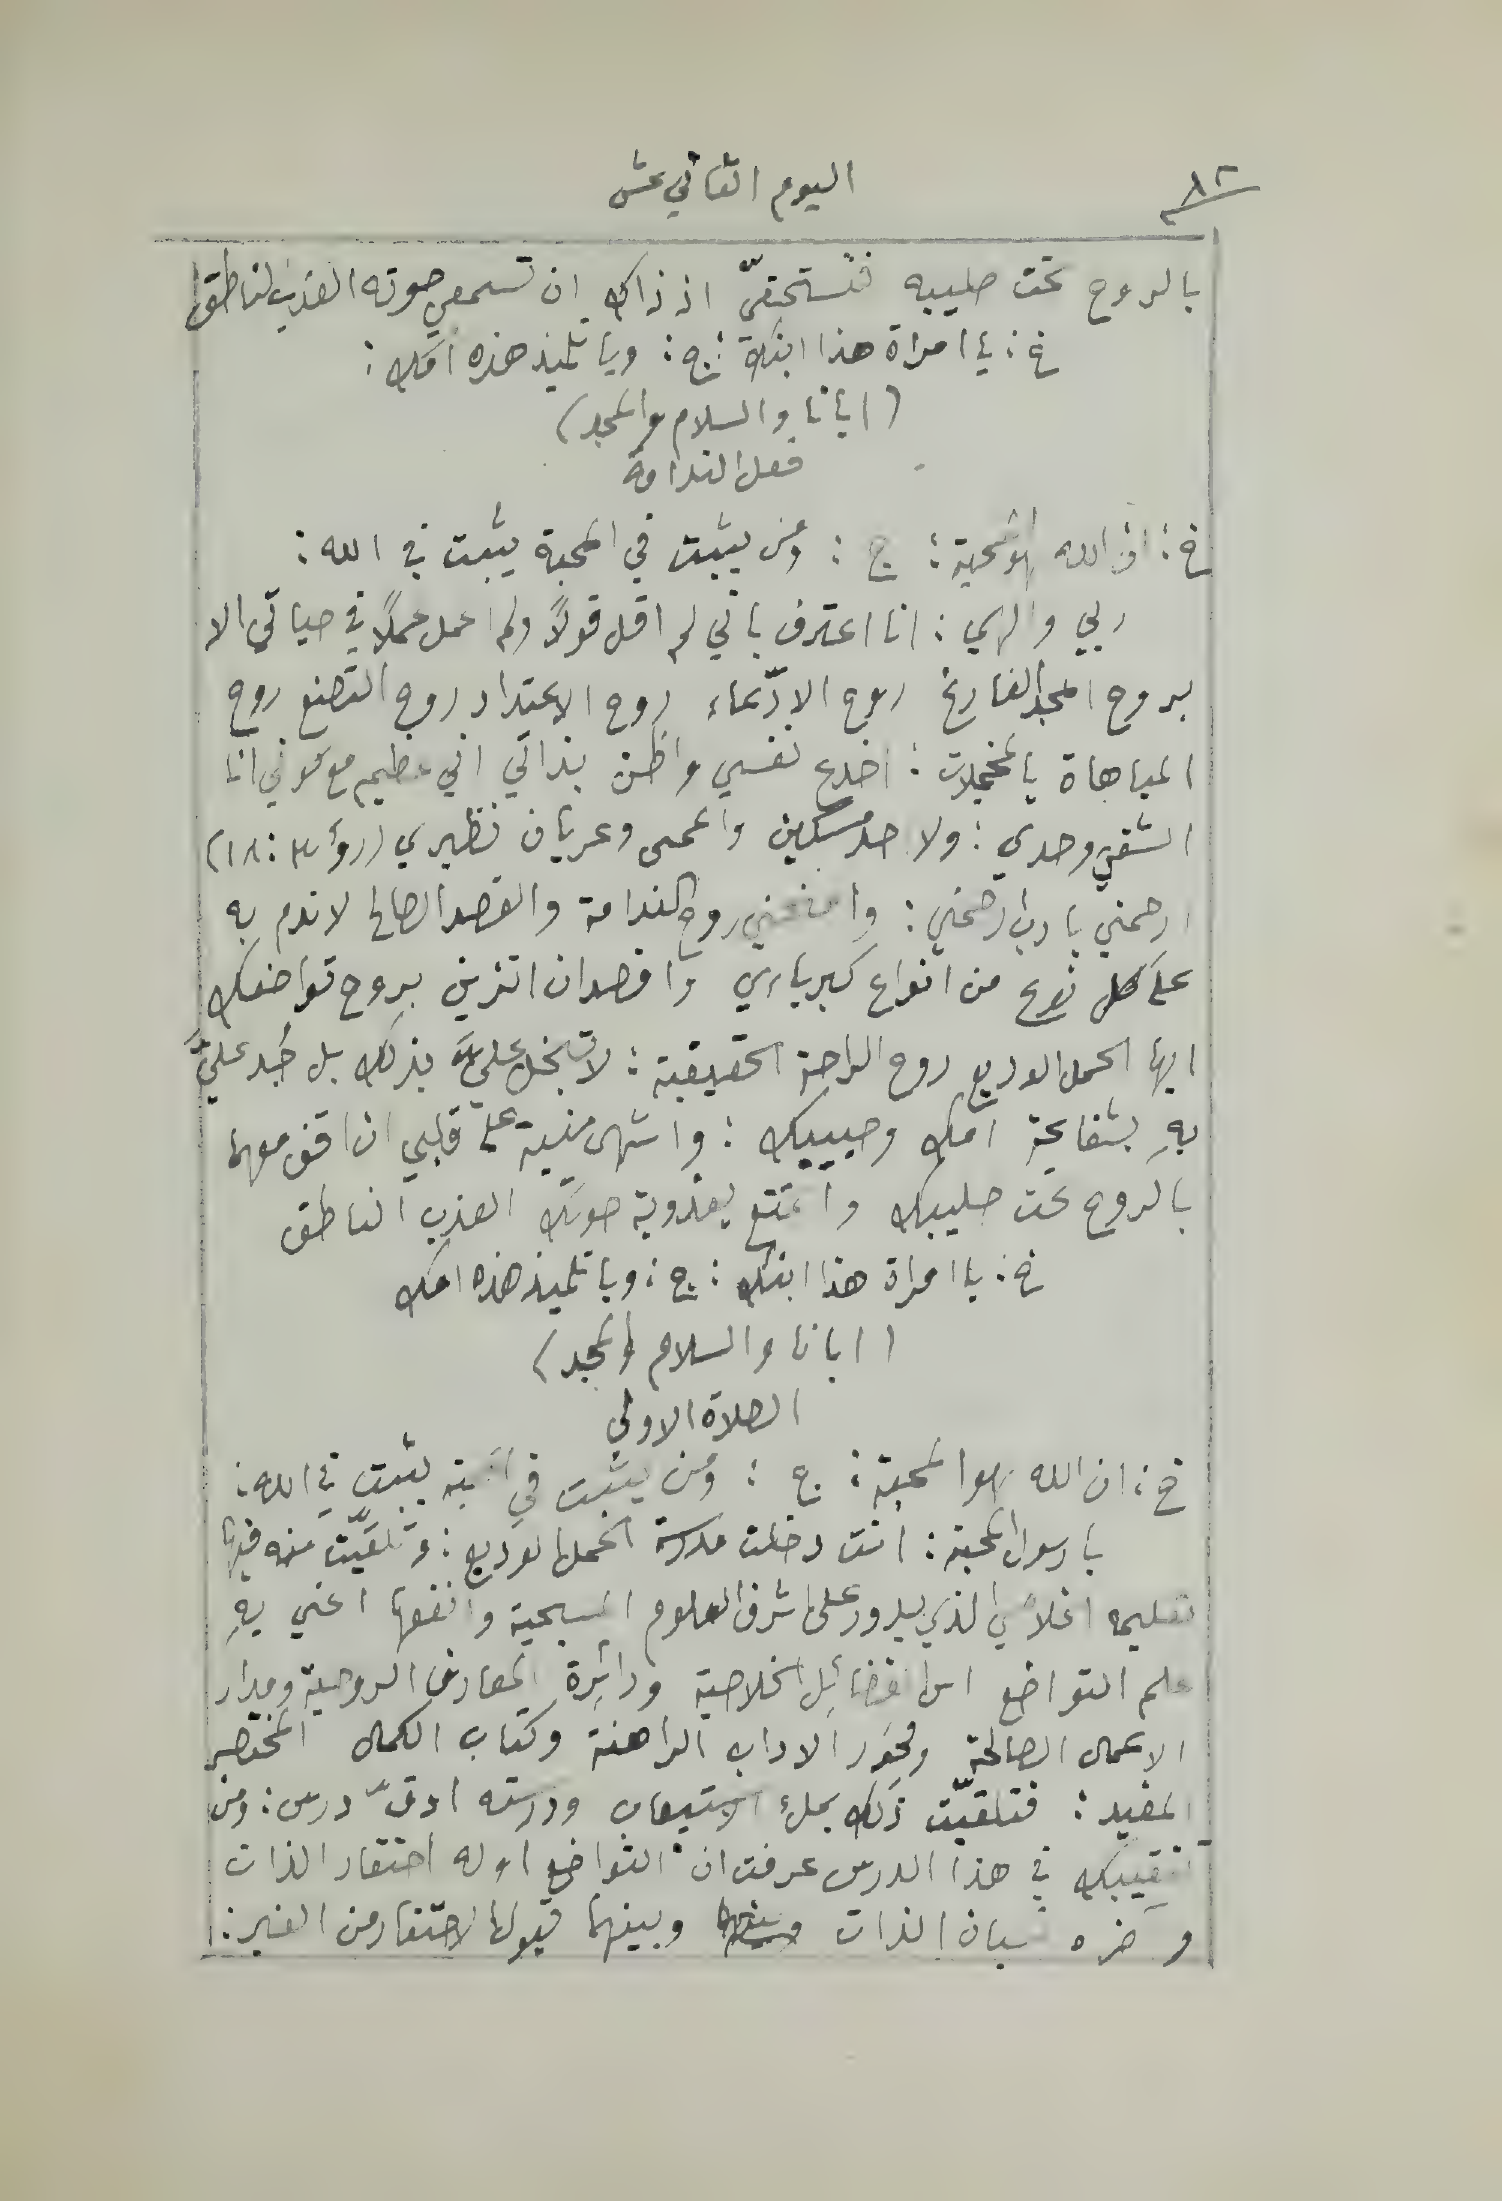 ٨٢
اليوم الثاني عشر
بالروح تحت صليبه فتستحقيّ اذ ذاك ان تسمعي صوته العذب الناطق
خ: يا امراة هذا ابنك: ج: ويا تلميذ هذه امك:
(ابانا والسلام والمجد)
فعل الندامة
خ: ان الله هو المحبة: ج: ومن يثبت في المحبة يثبت في الله:
ربي والهي: انا اعترف باني لم اقل قولاً ولم اعمل عملاً في حياتي الا
بروح المجد الفارغ روح الادّعاء روح الاعتداد روح التصنع روح
المباهاة بالمخجلات: اخدع نفسي واظن بذاتي اني عظيم مع كوني انا
الشقي وحدي: ولا احد مسكين واعمى وعريان نظيري (رؤ ٣: ١٨)
ارحمني يا رب ارحمني: وامنحني روح الندامة والقصد الصالح لاندم به
على كل نوع من انواع كبريائي واقصد ان اتزين بروح تواضعك
ايها الحمل الوديع روح الراحة الحقيقية: لا تبخل عليَّ بذلك بل جُد عليَّ
بهِ بشفاعة امك وحبيبك: واشهى منية على قلبي ان اقف معهما
بالروح تحت صليبك واتمتع بعذوبة صوتك العذب الناطق
خ: يا امراة هذا ابنك: ج: ويا تلميذ هذه امك
(ابانا والسلام والمجد)
الصلاة الاولى
خ: ان الله هو المحبة: ج: ومن يثبت في المحبة يثبت في الله:
يا رسول المحبة: انت دخلت مدرسة الحمل الوديع: وتلقيّت منه فيها
تعليمه الذي يدور على اشرف العلوم المسيحية وانفعها اعني بهِ
علم التواضع اس الفضائل الخلاصية ودائرة المعارف الروحية ومدار
الاعمال الصالحة ومحور الاداب الراهنة وكتاب الكمال المختصر
المفيد: فتلقيّت ذلك بملء الاستيعاب ودرسته ادقّ درس: ومن
في هذا الدرس عرفت ان التواضع اوله احتقار الذات
واخره نسيان الذات وبينهما قبول الاحتقار من الغير: